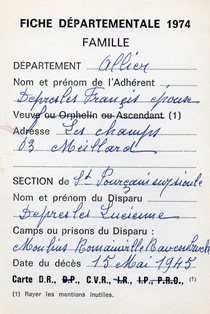 FICHE DÉPARTEMENTALE 1974
FAMILLE
DÉPARTEMENT Allier
Nom et prénom de l'Adhérent
Depresles François époux
Veuve ou Orphelin ou Ascendant (1)
Adresse Les champs
03 Meillard
SECTION de St Pourçain sur sioule
Nom et prénom du Disparu
Depresles Lucienne
Camps ou prisons du Disparu :
Moulins Romainville Ravensbruck
Date du décès 15 Mai 1945
Carte D.R., D.P., C.V.R., I.R., I.P., P.R.O., (1)
(1) Rayer les mentions inutiles.